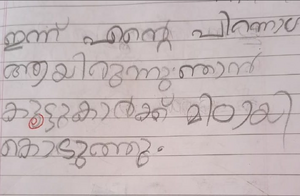 ഇന്ന് എന്റെ പിറന്നാ
ആയിരുന്നു ഞാൻ
കൂട്ടുകാർക്ക് മിഠായി
കൊടുത്തു.